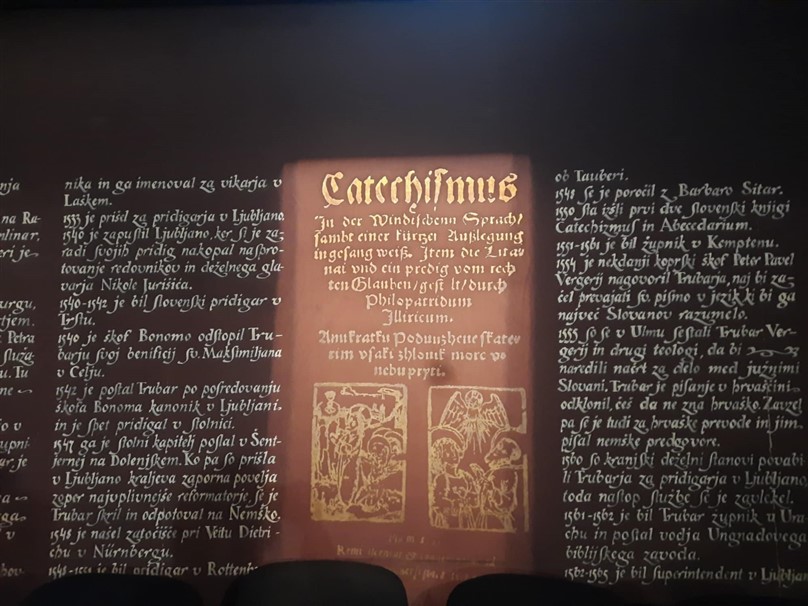 nja
na Ra-
linar.
eri je
urgu,
tjem.
Petra
služa-
u. Tu
o v
upni-
ar je
va
ega
hov.
nika in ga imenoval za vikarja v
Laškem.
1535 je prišel za pridigarja v Ljubljano.
1540 je zapustil Ljubljano, ker si je za-
radi svojih pridig nakopal naspro-
tovanje redovnikov in deželnega gla-
varja Nikole Jurišiča.
1540-1542 je bil slovenski pridigar v
Trstu.
1540 je škof Bonomo odstopil Tru-
barju svoj beneficij sv. Maksimiljana
v Celju.
1542 je postal Trubar po posredovanju
škofa Bonoma kanonik v Ljubljani.
in je spet pridigal v stolnici.
1547 ga je stolni kapitelj poslal v Šent-
jernej na Dolenjskem. Ko pa so prišla
v Ljubljano kraljeva zaporna povelja
zoper najuplivnejše reformatorje, se je
Trubar skril in odpotoval na Nemško.
1548 je našel zatočišče pri Veitu Dietri-
chu v Nürnbergu.
je bil pridigar v Rothenb
Catechismus
In der Windischenn Sprach/
sambt einer kürtzen Außlegung
in gesang weiß. Item die Lita-
nai vnd ein predig vom rech
ten Glauben/ gest lt/ durch
Philopatridum
Illiricum.
Anu kratku Poduuzhene skate-
rim vsaki zhlouik more vo
nebu pryti.
ob Tauberi.
1549 se je poročil z Barbaro Sitar.
1550 sta izšli prvi dve slovenski knjigi
Catechizmus in Abecedarium.
1551-1561 je bil župnik v Kemptenu.
1554 je nekdanji koprski škof Peter Pavel
Vergerij nagovoril Trubarja, naj bi za-
čel prevajati sv. pismo v jezik, ki bi ga
največ Slovanov razumelo.
1555 so se v Ulmu sestali Trubar Ver-
gerij in drugi teologi, da bi
naredili načrt za delo med južnimi
Slovani. Trubar je pisanje v hrvaščini
odklonil, češ da ne zna hrvaško. Zavzel
pa se je tudi za hrvaške prevode in jim
pisal nemške predgovore.
1560 so kranjski deželni stanovi povabi-
li Trubarja za pridigarja v Ljubljano,
toda nastop službe se je zavlekel.
1561-1562 je bil Trubar župnik v Ura
chu in postal vodja Ungnadovega
biblijskega zavoda.
1562-1565 je bil superintendent v Ljubljan